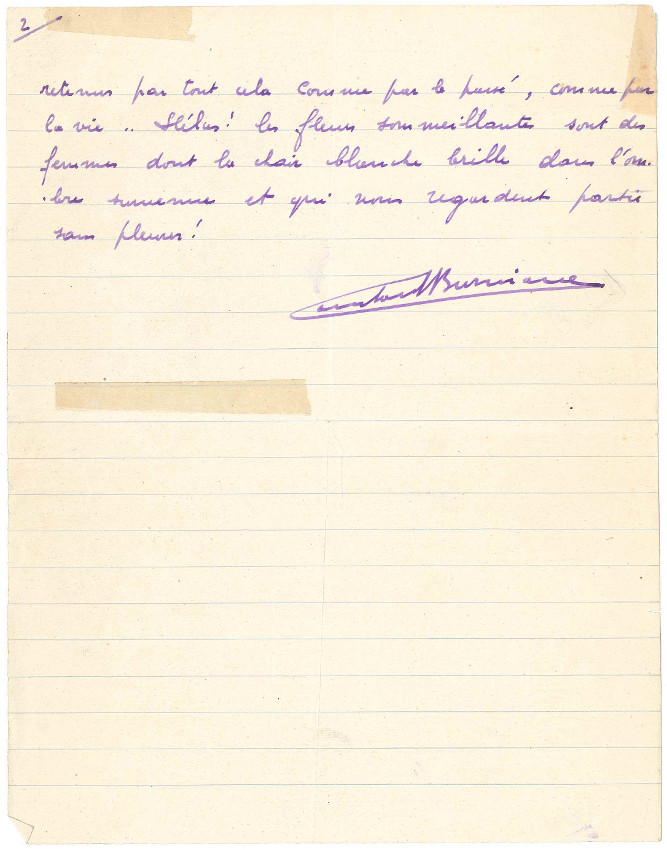 2
retenus par tout cela comme par le passé, comme par
la vie .. Hélas! les fleurs sommeillantes sont des
femmes dont la chair blanche brille dans l'om-
-bre survenue et qui nous regardent partir
sans pleurer!